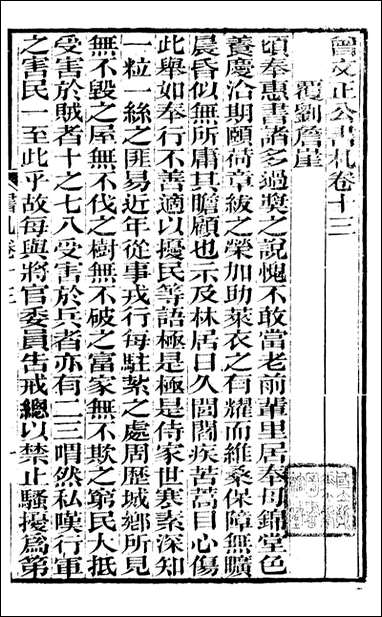 曾文正公書札卷十三
覆劉詹崖
頃奉惠書諸多過獎之說愧不敢當老前輩里居奉母錦堂色
養慶洽期頤荷章紱之榮加助萊衣之有耀而維桑保障無曠
晨昏似無所庸其瞻顧也示及林居日久閭閻疾苦蒿目心傷
此舉如奉行不善適以擾民等語極是極是侍家世寒素深知
一粒一絲之匪易近年從事戎行每駐紮之處周歷城鄉所見
無不毀之屋無不伐之樹無不破之富家無不欺之窮民大抵
受害於賊者十之七八受害於兵者亦有二三喟然私嘆行軍
之害民一至此乎故每與將官委員告戒總以禁止騷擾為第
書札卷十三
一